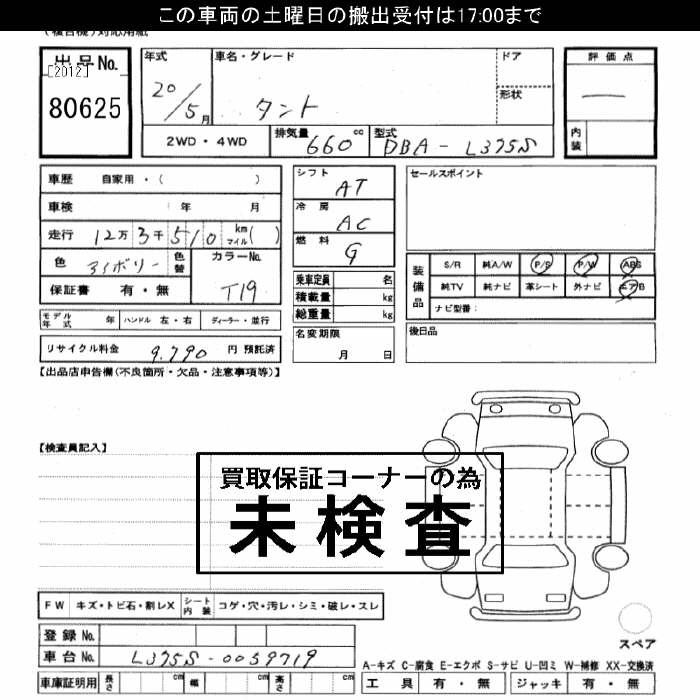 この車両の土曜日の搬出受付は17:00まで
(複合機)対応用紙
出品No.
[2012]
80625
年式 20/5月
車名・グレード タント
ドア
形状
評価点 —
内装
2WD・4WD
排気量 660 cc
型式 DBA-L375S
車歴 自家用・( )
車検 年 月
走行 12万3千510 km マイル( )
色 アイボリー 色替
カラーNo. T19
保証書 有・無
モデル年式 年 ハンドル 左・右 ディーラー・並行
リサイクル料金 9,790 円 預託済
シフト AT
冷房 AC
燃料 G
乗車定員 名
積載量 kg
総重量 kg
名変期限
月 日
セールスポイント
装備品
S/R 純A/W P/S P/W ABS
純TV 純ナビ 革シート 外ナビ エアB
ナビ型番:
後日品
【出品店申告欄(不良箇所・欠品・注意事項等)】
【検査員記入】
買取保証コーナーの為
未検査
FW キズ・トビ石・割レX シート内装 コゲ・穴・汚レ・シミ・破レ・スレ
登録No.
車台No. L375S-0059719
車庫証明用 長さ cm 幅 cm 高さ cm
スペア
A-キズ C-腐食 E-エクボ S-サビ U-凹ミ W-補修 XX-交換済
工具 有・無 ジャッキ 有・無